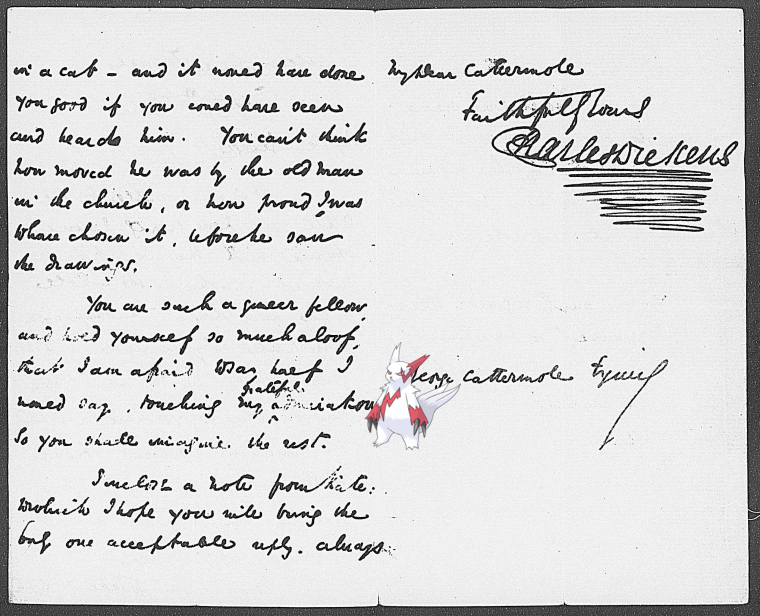 in a cab – and it would have done
you good if you could have seen
and heard him. You can't think
how moved he was by the old man
in the church, or how proud I was
to have chosen it, before he saw
the drawings.
You are such a queer fellow,
and hold yourself so much aloof,
that I am afraid to say half I
would say, touching my grateful admiration
So you shall imagine the rest.
I enclose a note from Kate:
to which I hope you will bring the
only one acceptable reply. always
My Dear Cattermole
Faithfully Yours
Charles Dickens
George Cattermole Esquire